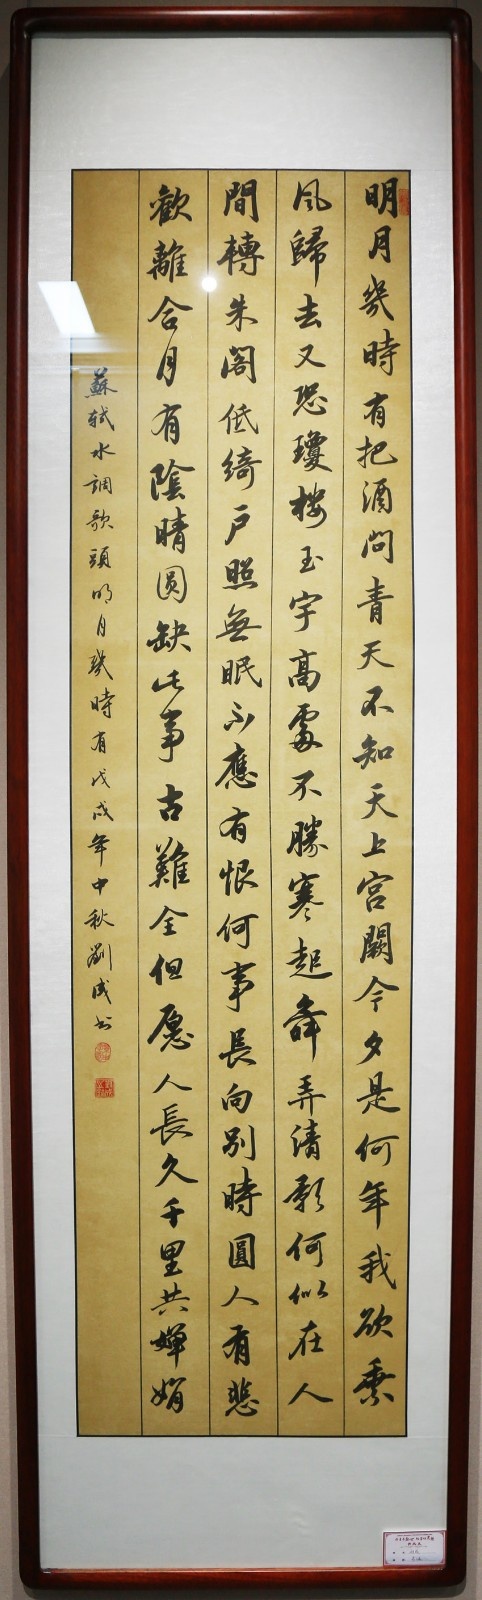 明月幾時有把酒问青天不知天上宫闕今夕是何年我欲乘
风歸去又恐瓊楼玉宇高處不勝寒起舞弄清影何似在人
間轉朱阁低绮户照無眠不應有恨何事長向别時圓人有悲
歡離合月有陰晴圆缺此事古難全但愿人長久千里共嬋娟
蘇轼水調歌頭明月幾時有戊戌年中秋劉成书